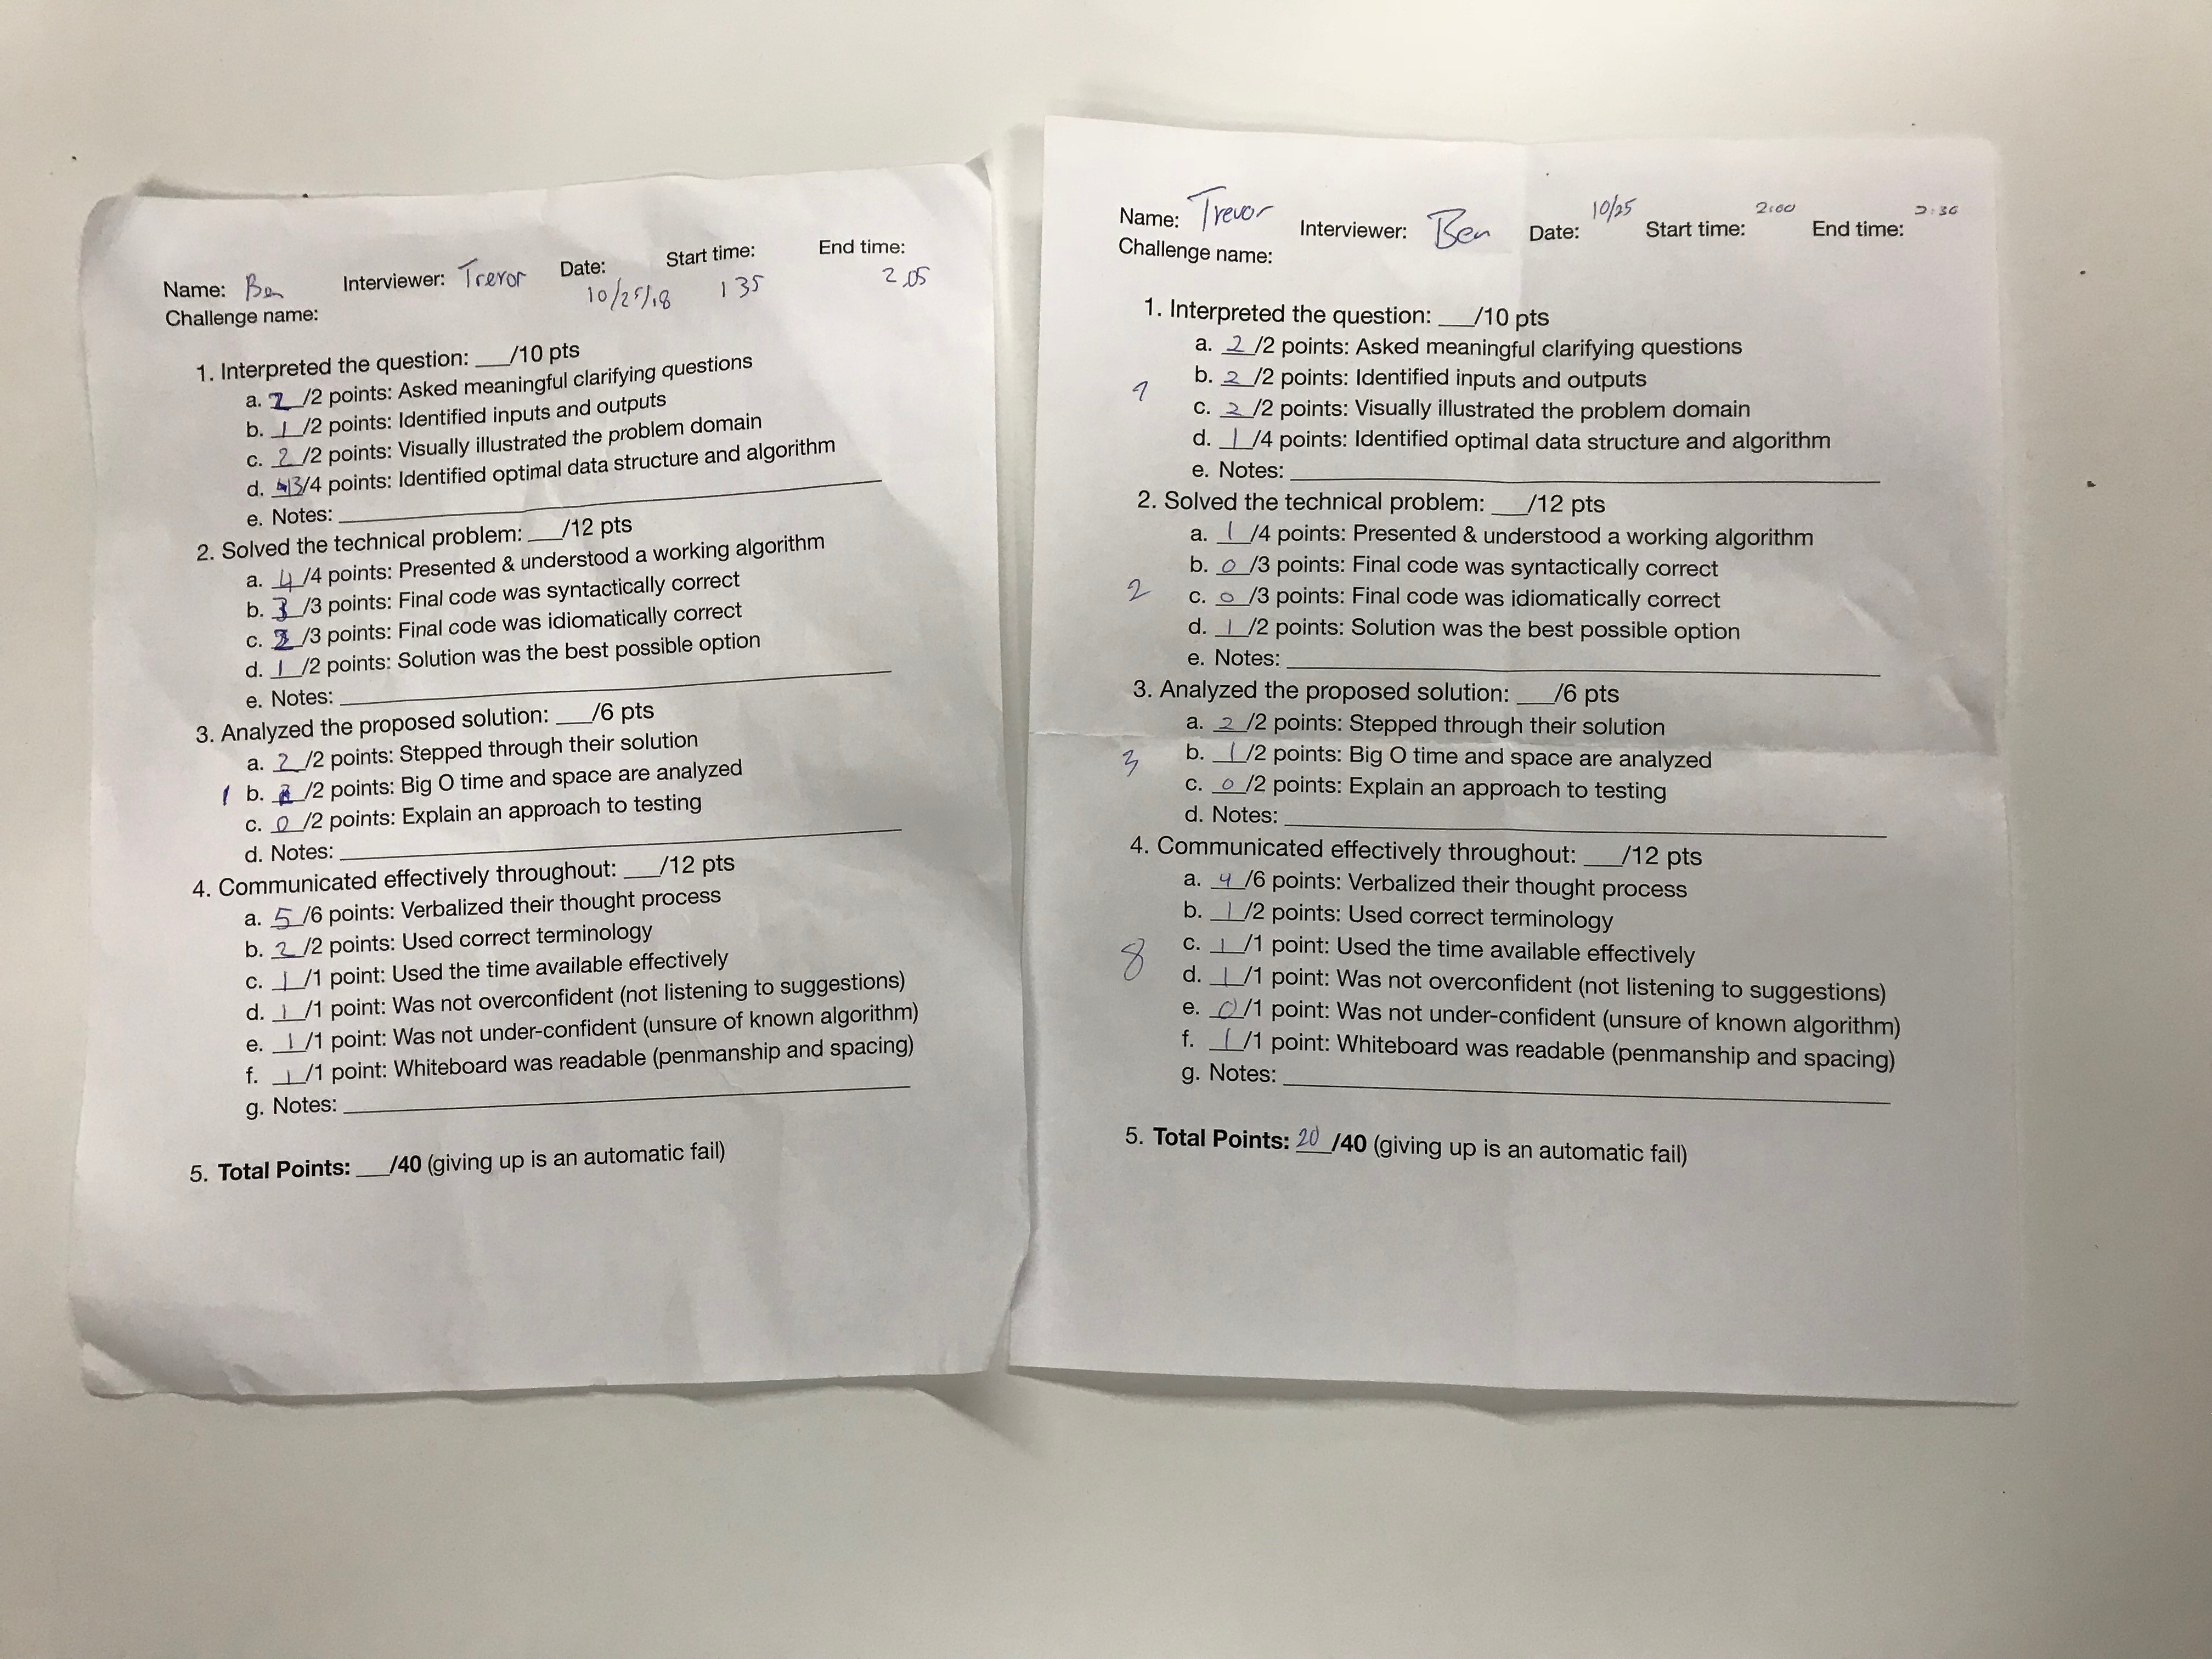 Name: Ben Interviewer: Trevor Date: 10/25/18 Start time: 1 35 End time: 2 05
Challenge name:
1. Interpreted the question: ___/10 pts
a. 2/2 points: Asked meaningful clarifying questions
b. 1/2 points: Identified inputs and outputs
c. 2/2 points: Visually illustrated the problem domain
d. 3/4 points: Identified optimal data structure and algorithm
e. Notes:
2. Solved the technical problem: ___/12 pts
a. 4/4 points: Presented & understood a working algorithm
b. 3/3 points: Final code was syntactically correct
c. /3 points: Final code was idiomatically correct
d. 1/2 points: Solution was the best possible option
e. Notes:
3. Analyzed the proposed solution: ___/6 pts
a. 2/2 points: Stepped through their solution
1 b. /2 points: Big O time and space are analyzed
c. 0/2 points: Explain an approach to testing
d. Notes:
4. Communicated effectively throughout: ___/12 pts
a. 5/6 points: Verbalized their thought process
b. 2/2 points: Used correct terminology
c. 1/1 point: Used the time available effectively
d. 1/1 point: Was not overconfident (not listening to suggestions)
e. 1/1 point: Was not under-confident (unsure of known algorithm)
f. 1/1 point: Whiteboard was readable (penmanship and spacing)
g. Notes:
5. Total Points: ___/40 (giving up is an automatic fail)
Name: Trevor Interviewer: Ben Date: 10/25 Start time: 2:00 End time:
Challenge name:
1. Interpreted the question: ___/10 pts
a. 2/2 points: Asked meaningful clarifying questions
b. 2/2 points: Identified inputs and outputs
7
c. 2/2 points: Visually illustrated the problem domain
d. 1/4 points: Identified optimal data structure and algorithm
e. Notes:
2. Solved the technical problem: ___/12 pts
a. 1/4 points: Presented & understood a working algorithm
b. 0/3 points: Final code was syntactically correct
2 c. 0/3 points: Final code was idiomatically correct
d. 1/2 points: Solution was the best possible option
e. Notes:
3. Analyzed the proposed solution: ___/6 pts
a. 2/2 points: Stepped through their solution
3 b. 1/2 points: Big O time and space are analyzed
c. 0/2 points: Explain an approach to testing
d. Notes:
4. Communicated effectively throughout: ___/12 pts
a. 4/6 points: Verbalized their thought process
b. 1/2 points: Used correct terminology
8 c. 1/1 point: Used the time available effectively
d. 1/1 point: Was not overconfident (not listening to suggestions)
e. 0/1 point: Was not under-confident (unsure of known algorithm)
f. 1/1 point: Whiteboard was readable (penmanship and spacing)
g. Notes:
5. Total Points: 20/40 (giving up is an automatic fail)